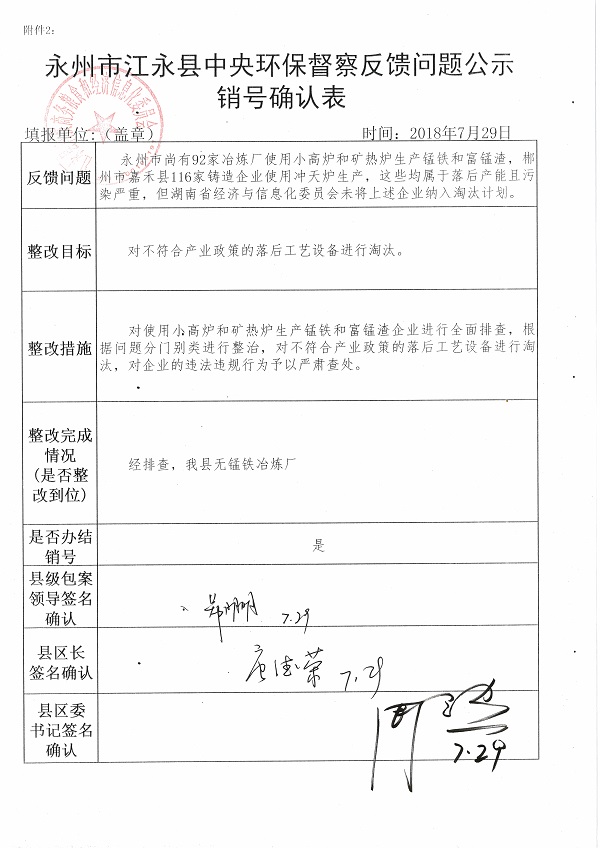 附件2:
永州市江永县中央环保督察反馈问题公示
销号确认表
填报单位:（盖章）
时间：2018年7月29日
反馈问题
永州市尚有92家冶炼厂使用小高炉和矿热炉生产锰铁和富锰渣，郴
州市嘉禾县116家铸造企业使用冲天炉生产，这些均属于落后产能且污
染严重，但湖南省经济与信息化委员会未将上述企业纳入淘汰计划。
整改目标
对不符合产业政策的落后工艺设备进行淘汰。
整改措施
对使用小高炉和矿热炉生产锰铁和富锰渣企业进行全面排查，根
据问题分门别类进行整治，对不符合产业政策的落后工艺设备进行淘
汰，对企业的违法违规行为予以严肃查处。
整改完成
情况
(是否整
改到位)
经排查，我县无锰铁冶炼厂
是否办结
销号
是
县级包案
领导签名
确认
7.29
县区长
签名确认
唐德荣 7.29
县区委
书记签名
确认
7.29